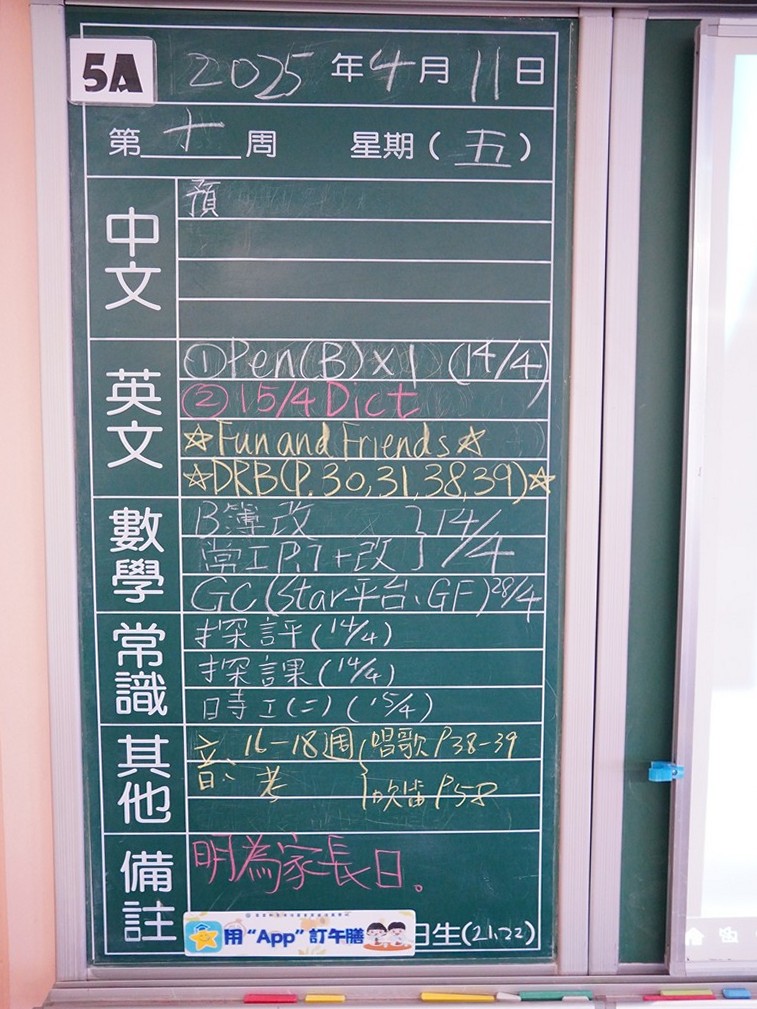 5A 2025年4月11日
第十周 星期(五)
中文
預
英文
①Pen(B)×1 (14/4)
②15/4 Dict
☆Fun and Friends☆
☆DRB(P.30,31,38,39)☆
數學
B簿改 }14/4
常工P.7+改
GC(Star平台、GF)28/4
常識
探評(14/4)
探課(14/4)
時工(二)(15/4)
其他
音: 16-18週 { 唱歌P38-39
考 吹笛P58
備註
明為家長日。
用“App”訂午膳
日生(21,22)